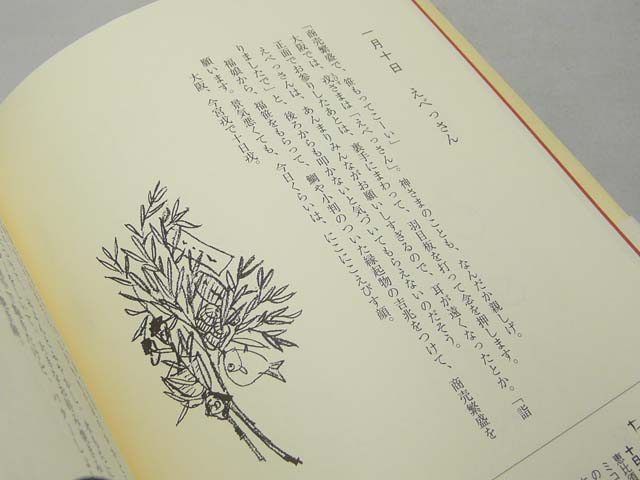 一月十日　えべっさん
「商売繁盛で、笹もってこーい」
大阪では、戎さまは「えべっさん」。神さまのことも、なんだか親しげ。
正面でお参りしたあとは、裏手にまわって、羽目板を打って念を押します。
えべっさんは、あんまりみんながお願いしすぎるので、耳が遠くなったとか。「詣
りましたで」と、後ろからも叩かないと気づいてもらえないのだそう。
福娘から、福笹をもらって、鯛や小判のついた縁起物の吉兆をつけて、商売繁盛を
願います。景気悪くても、今日くらいは、にこにこえびす顔。
大阪、今宮戎で十日戎。
十日
恵比須
ミコ